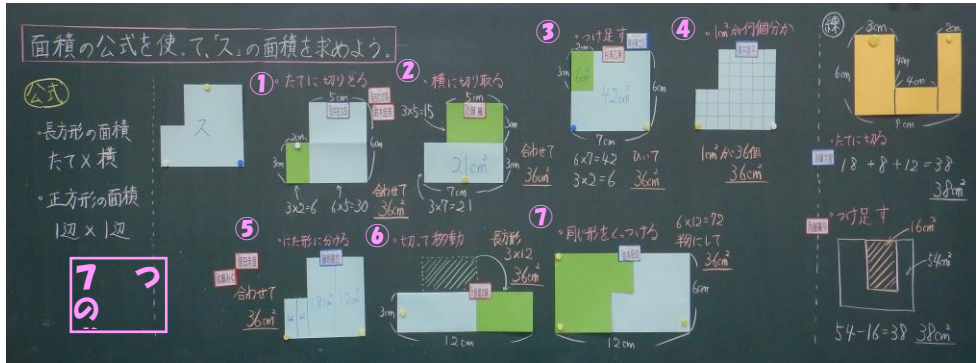 面積の公式を使って、「ス」の面積を求めよう。
公式
・長方形の面積
たて×横
・正方形の面積
1辺×1辺
7つ
の
ス
①・たてに切りとる
5cm
2cm
3cm
6cm
3×2=6
6×5=30
合わせて
36cm²
②・横に切り取る
5cm
3×5=15
3cm
21cm²
3cm
7cm
3×7=21
合わせて
36cm²
③・つけ足す
2cm
3cm
6cm²
42cm²
6cm
7cm
6×7=42
3×2=6
ひいて
36cm²
④・1cm²が何個分か
1cm²が36個
36cm²
⑤・にた形に分ける
合わせて
36cm²
18cm²
12cm²
⑥・切って移動
長方形
3×12
36cm²
3cm
12cm
⑦・同じ形をくっつける
6×12=72
半分にして
36cm²
6cm
12cm
練
3cm
2cm
6cm
4cm
4cm
9cm
・たてに切る
18+8+12=38
38cm²
・つけ足す
16cm²
54cm²
54-16=38
38cm²